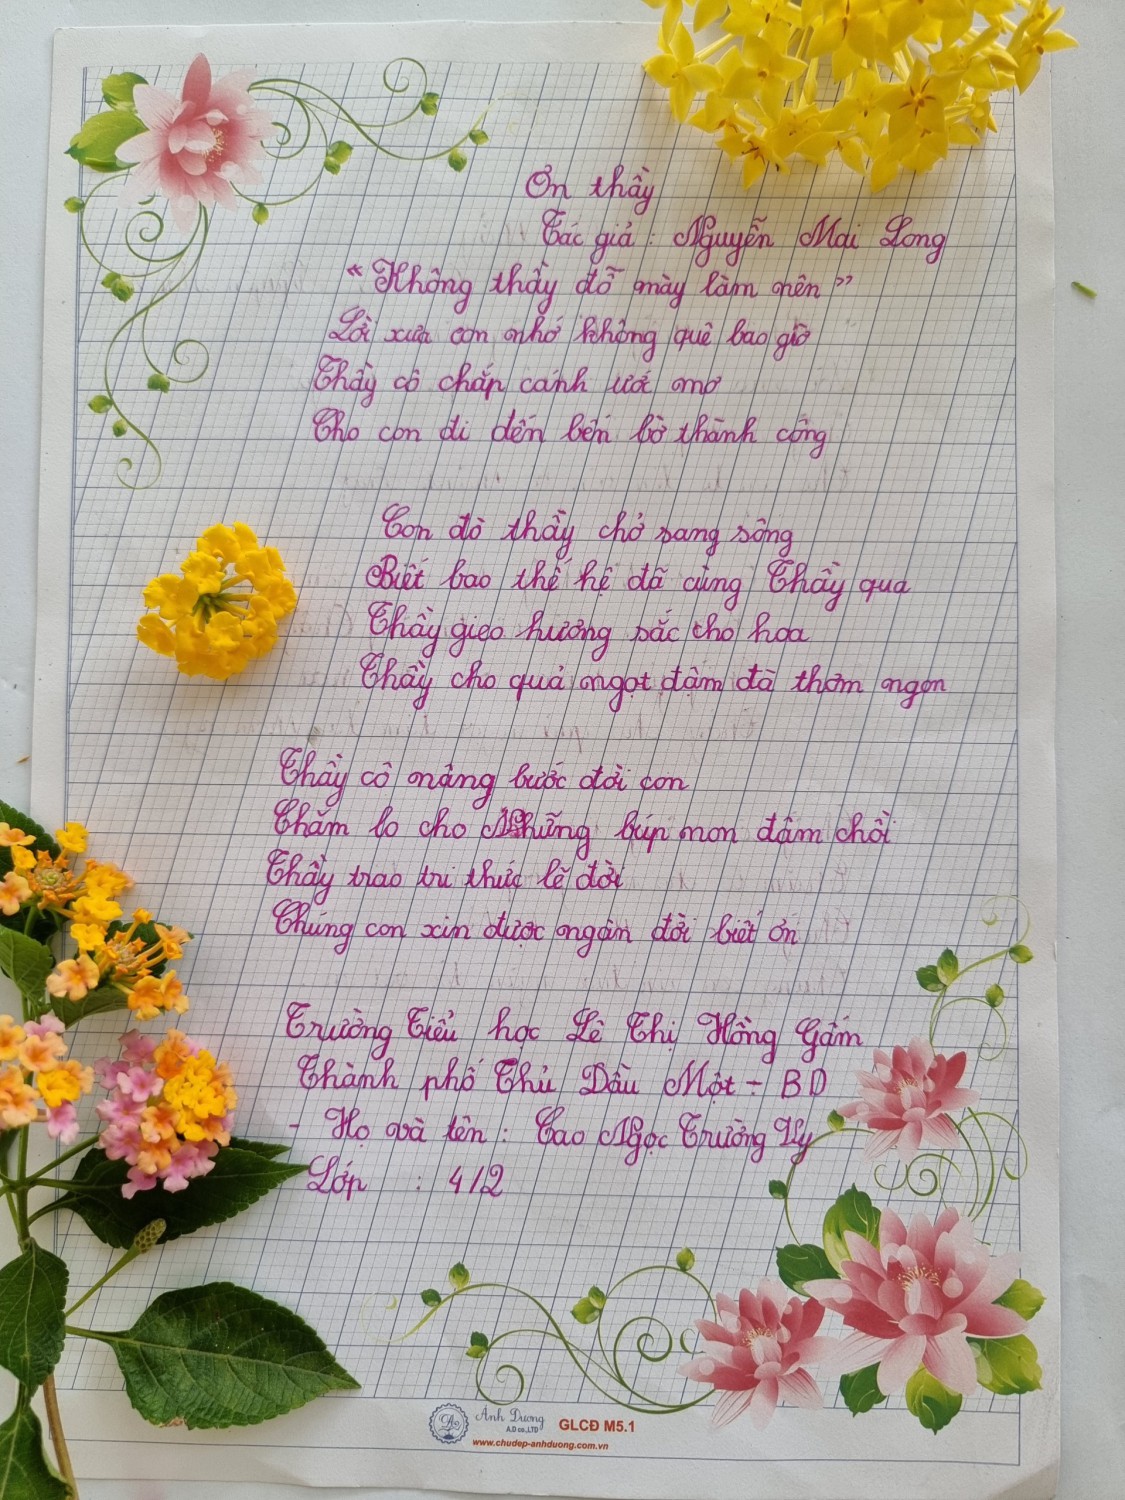 Ơn thầy
Tác giả : Nguyễn Mai Long
"Không thầy đố mày làm nên"
Lời xưa con nhớ không quê bao giờ
Thầy cô chắp cánh ước mơ
Cho con đi đến bến bờ thành công
Con đò thầy chở sang sông
Biết bao thế hệ đã cùng Thầy qua
Thầy gieo hương sắc cho hoa
Thầy cho quả ngọt đậm đà thơm ngon
Thầy cô nâng bước đời con
Chăm lo cho Những búp mon đâm chồi
Thầy trao tri thức lẽ đời
Chúng con xin được ngàn đời biết ơn
Trường Tiểu học Lê Thị Hồng Gấm
Thành phố Thủ Dầu Một - BD
- Họ và tên : Cao Ngọc Trường Vy
Lớp : 4/2
Anh Dương
A.D co.,LTD
GLCĐ M5.1
www.chudep-anhduong.com.vn